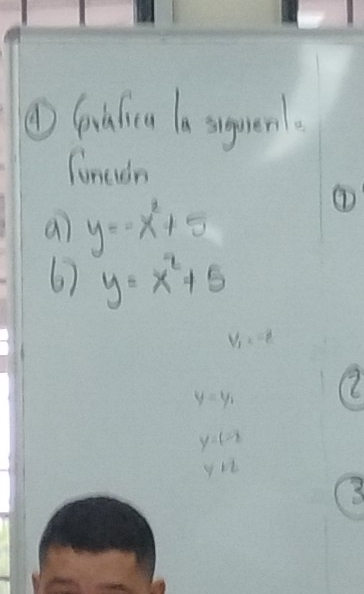 ① Gráfica la siguiente
función
a) y=-x²+5
b) y=x²+5
①
y₁=-2
y=y₁
②
y-(-2
y+2
③